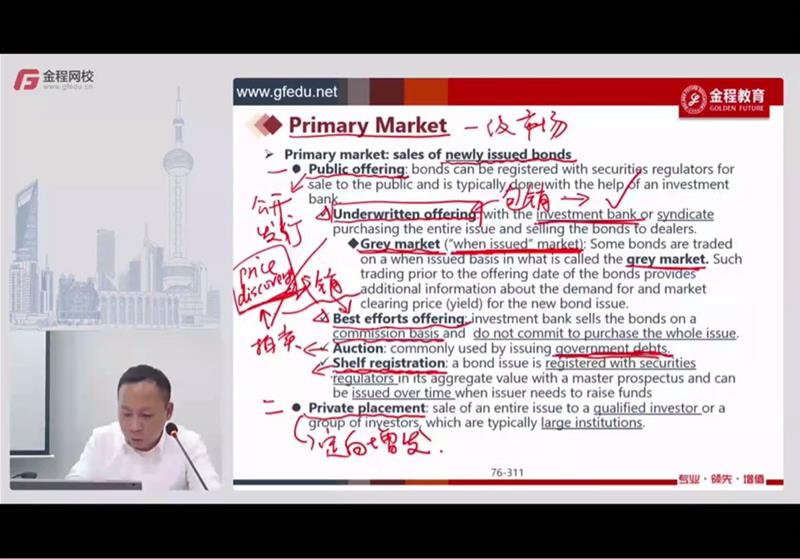 金程网校
www.gfedu.cn
www.gfedu.net
金程教育
GOLDEN FUTURE
Primary Market 一级市场
Primary market: sales of newly issued bonds
一 Public offering: bonds can be registered with securities regulators for
sale to the public and is typically done with the help of an investment
bank.
公开
发行
包销
Underwritten offering: with the investment bank or syndicate
purchasing the entire issue and selling the bonds to dealers.
Grey market ("when issued" market): Some bonds are traded
on a when issued basis in what is called the grey market. Such
trading prior to the offering date of the bonds provides
additional information about the demand for and market
clearing price (yield) for the new bond issue.
price
discovery
销
Best efforts offering: investment bank sells the bonds on a
commission basis and do not commit to purchase the whole issue.
拍卖
Auction: commonly used by issuing government debts.
Shelf registration: a bond issue is registered with securities
regulators in its aggregate value with a master prospectus and can
be issued over time when issuer needs to raise funds
二 Private placement: sale of an entire issue to a qualified investor or a
group of investors, which are typically large institutions.
定向增发
76-311
专业·领先·增值